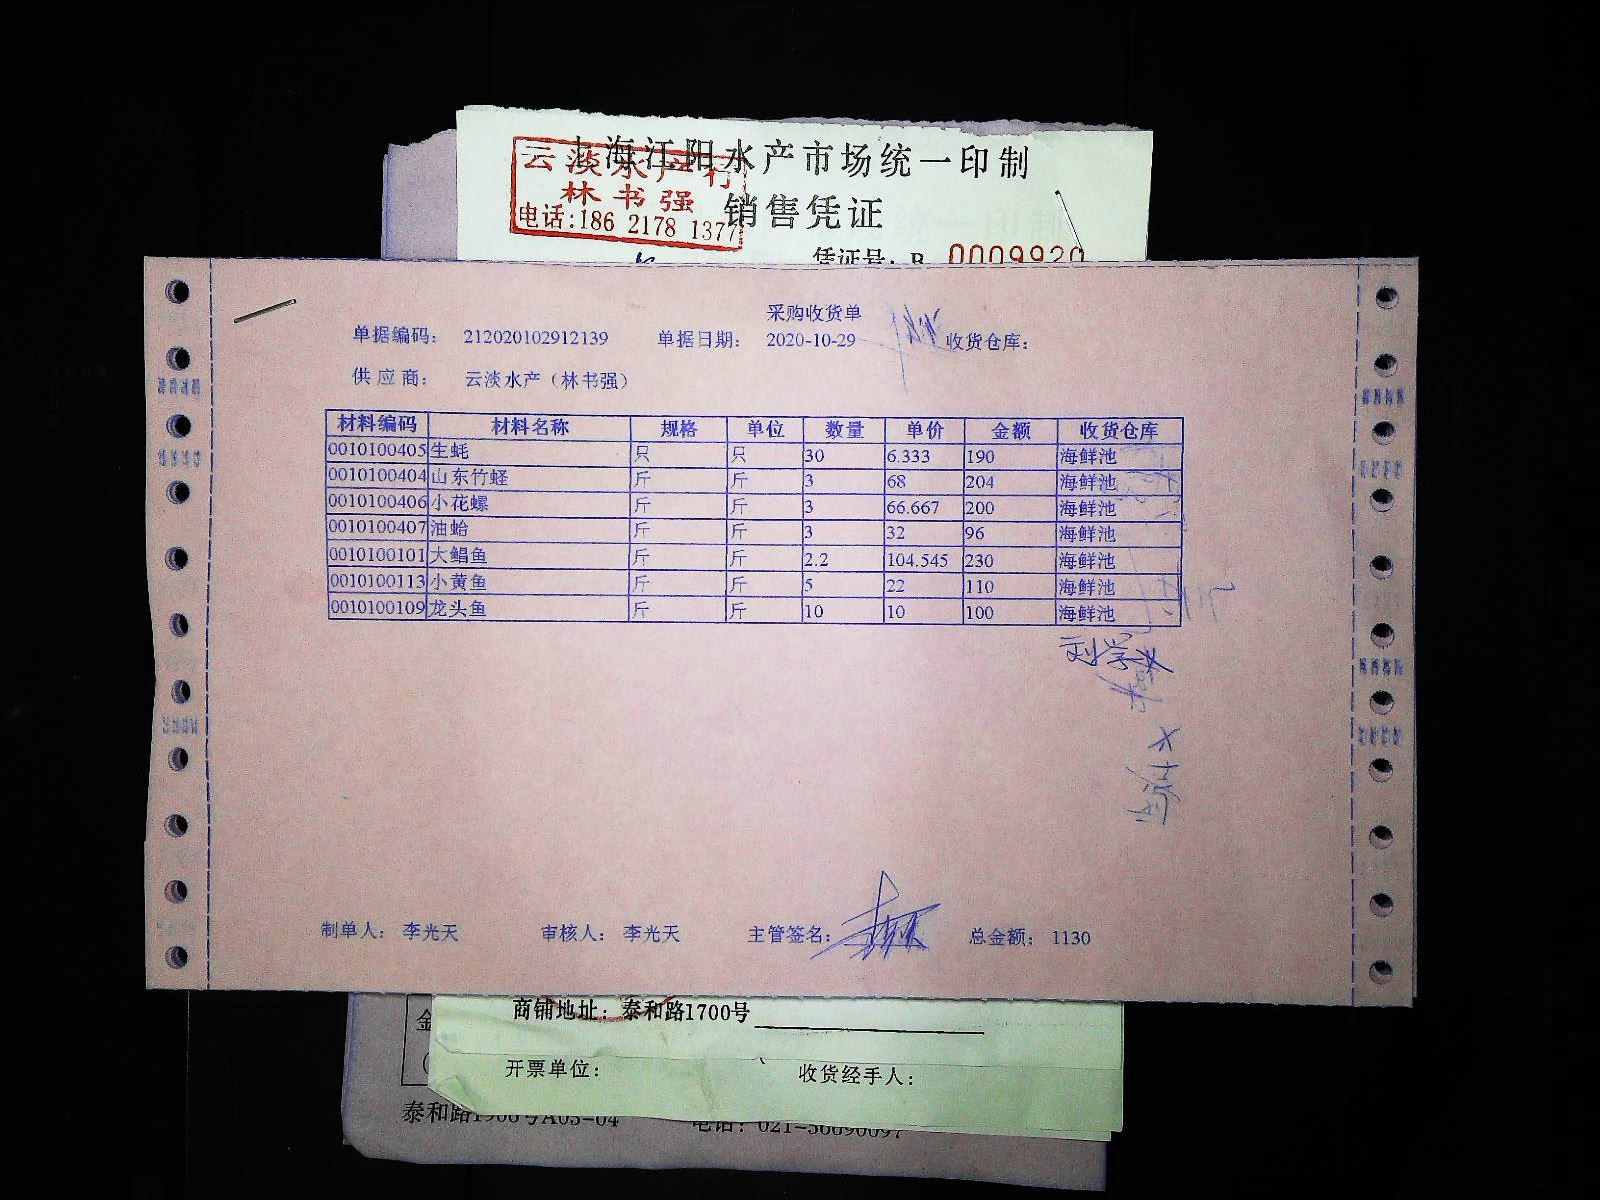 上海江阳水产市场统一印制
云淡水产行
林书强
电话:186 2178 1377
销售凭证
凭证号: B 0009920
采购收货单
单据编码: 212020102912139 单据日期: 2020-10-29 收货仓库:
供应商: 云淡水产（林书强）
材料编码 材料名称 规格 单位 数量 单价 金额 收货仓库
0010100405 生蚝 只 只 30 6.333 190 海鲜池
0010100404 山东竹蛏 斤 斤 3 68 204 海鲜池
0010100406 小花螺 斤 斤 3 66.667 200 海鲜池
0010100407 油蛤 斤 斤 3 32 96 海鲜池
0010100101 大鲳鱼 斤 斤 2.2 104.545 230 海鲜池
0010100113 小黄鱼 斤 斤 5 22 110 海鲜池
0010100109 龙头鱼 斤 斤 10 10 100 海鲜池
制单人: 李光天 审核人: 李光天 主管签名: 总金额: 1130
商铺地址: 泰和路1700号
金
开票单位: 收货经手人:
泰和路
电话: 021-